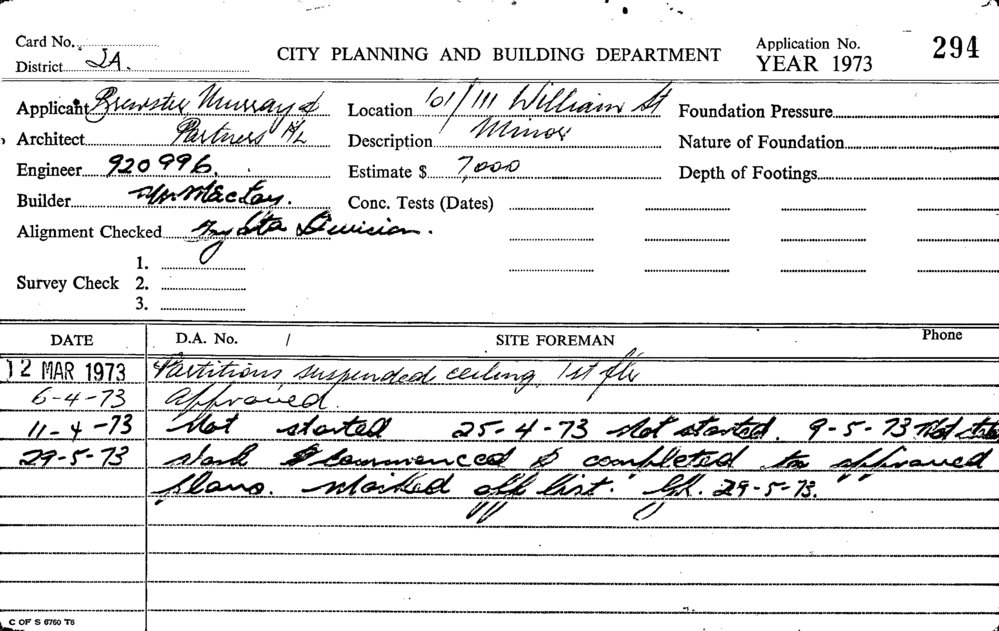 Card No.
District 2A.
CITY PLANNING AND BUILDING DEPARTMENT
Application No.
YEAR 1973
294
Applicant Brewster Murray &
Architect Partners P/L
Engineer 920996.
Builder Mr. Mackay.
Alignment Checked Division.
Survey Check 1.
2.
3.
Location 101/111 William St
Description Minor
Estimate $ 7,000
Conc. Tests (Dates)
Foundation Pressure
Nature of Foundation
Depth of Footings
DATE D.A. No. / SITE FOREMAN Phone
12 MAR 1973 Partitions, suspended ceiling, 1st flr
6-4-73 Approved.
11-4-73 Not started 25-4-73 Not started. 9-5-73 Not
29-5-73 commenced & completed to approved
plans. Marked off list. 29-5-73.
C OF S 6760 T6